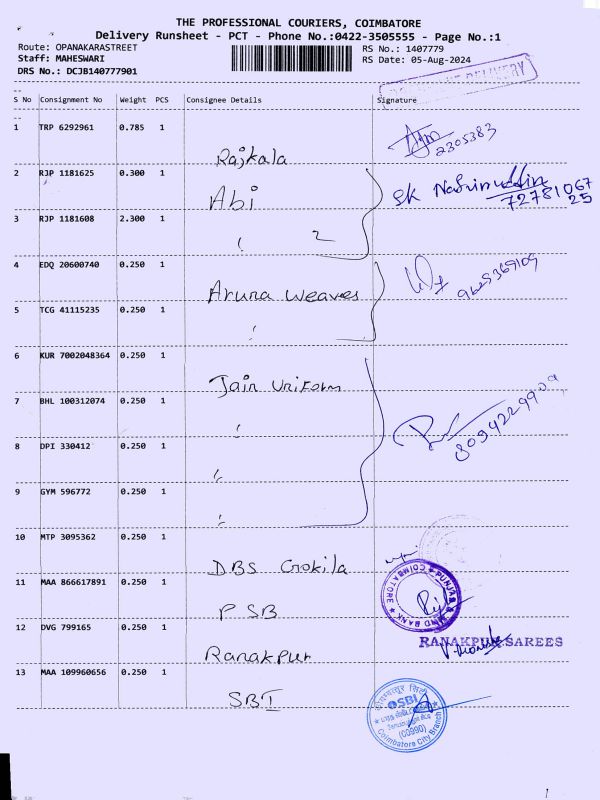 THE PROFESSIONAL COURIERS, COIMBATORE
Delivery Runsheet - PCT - Phone No.:0422-3505555 - Page No.:1
Route: OPANAKARASTREET RS No.: 1407779
Staff: MAHESWARI RS Date: 05-Aug-2024
DRS No.: DCJB140777901
DELIVERY
S No Consignment No Weight PCS Consignee Details Signature
1 TRP 6292961 0.785 1
Rajkala 2305383
2 RJP 1181625 0.300 1
Abi SK Nasiruddin
72781067
25
3 RJP 1181608 2.300 1
" 2
4 EDQ 20600740 0.250 1
Aruna Weaves
5 TCG 41115235 0.250 1
"
6 KUR 7002048364 0.250 1
Jain Uniform
7 BHL 100312074 0.250 1
" 8094229909
8 DPI 330412 0.250 1
"
9 GYM 596772 0.250 1
"
10 MTP 3095362 0.250 1
DBS Gokila
11 MAA 866617891 0.250 1
PSB PUNJAB & SIND BANK COIMBATORE
12 DVG 799165 0.250 1
Ranakpur RANAKPUR SAREES
13 MAA 109960656 0.250 1
SBI
कोयम्बत्तूर सिटी
SBI
(00990)
Coimbatore City Branch